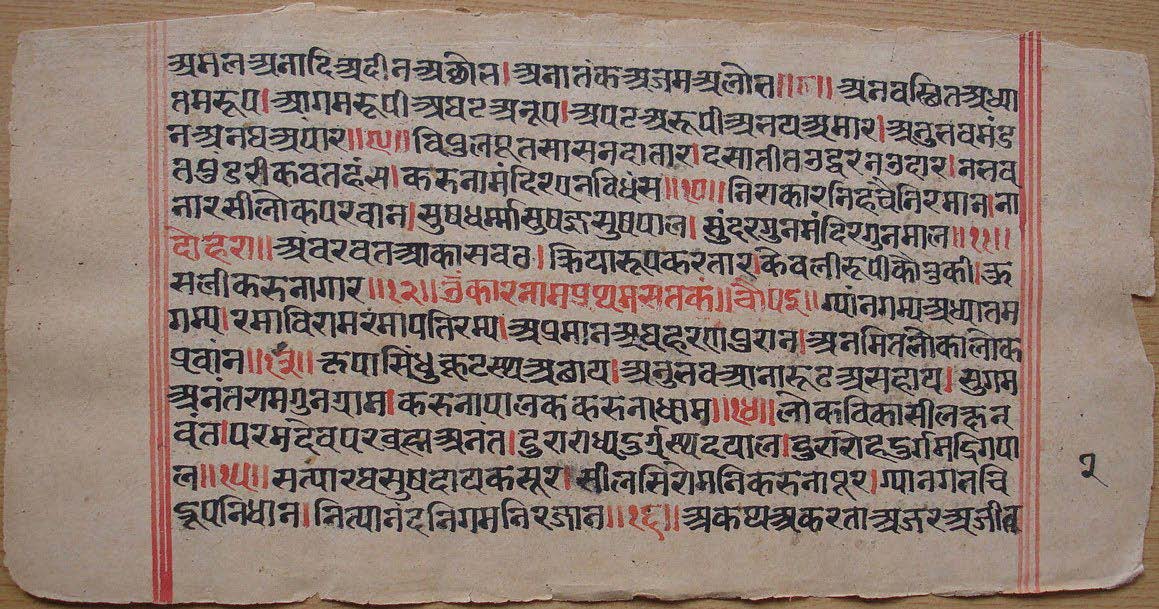 अमल अनादि अदीन अछोल। अनातंक अजम अलोल॥८॥ अनवस्थित अध्या
तमरूप। आगमरूपी अघट अनूप। अपट अरूपी अनय अमार। अनुनवमंड
न अनघ अपार॥९॥ विपुलपूतसासन दातार। दसातीत उद्धरन उदार। नलव
त पुंडरीकवत हंस। करुनामंदिर एनविधंस॥१०॥ निराकार निहचै निरमान। ना
नारसी लोकपरवान। सुषधर्म्मा सुषज्ञ सुषपाल। सुंदर गुनमंदिर गुनमाल॥११॥
दोहरा॥ अंवरवत आकासवत। क्रियारूप करतार। केवलीरूपी कौतुकी। कु
सली करुनागार॥१२॥ उंकारनाम प्रथम सतकं॥ चौपई॥ ग्यांनगम्य अध्यातम
गम्य। रमाविराम रमापति रम्य। अप्रमान अघहरण पुरान। अनमित लोकालोक
प्रवांन॥१३॥ कृपासिंधु कूटस्थ अछाय। अनुनव आनारूढ असहाय। सुगम
अनंतराम गुनग्राम। करुनापालक करुनाधाम॥१४॥ लोकविकासी लक्षन
वंत। परमदेव परब्रह्म अनंत। दुराराध्य दुर्गस्थ दयाल। दुरारोह दुर्गम द्रिगपा
ल॥१५॥ सत्यारथ सुषदायक सूर। सीलसिरोमनि करुनापूर। ग्यानगन चि
द्रूपनिधान। नित्यानंद निगम निरजान॥१६॥ अकथ अकरता अजर अजीत
२